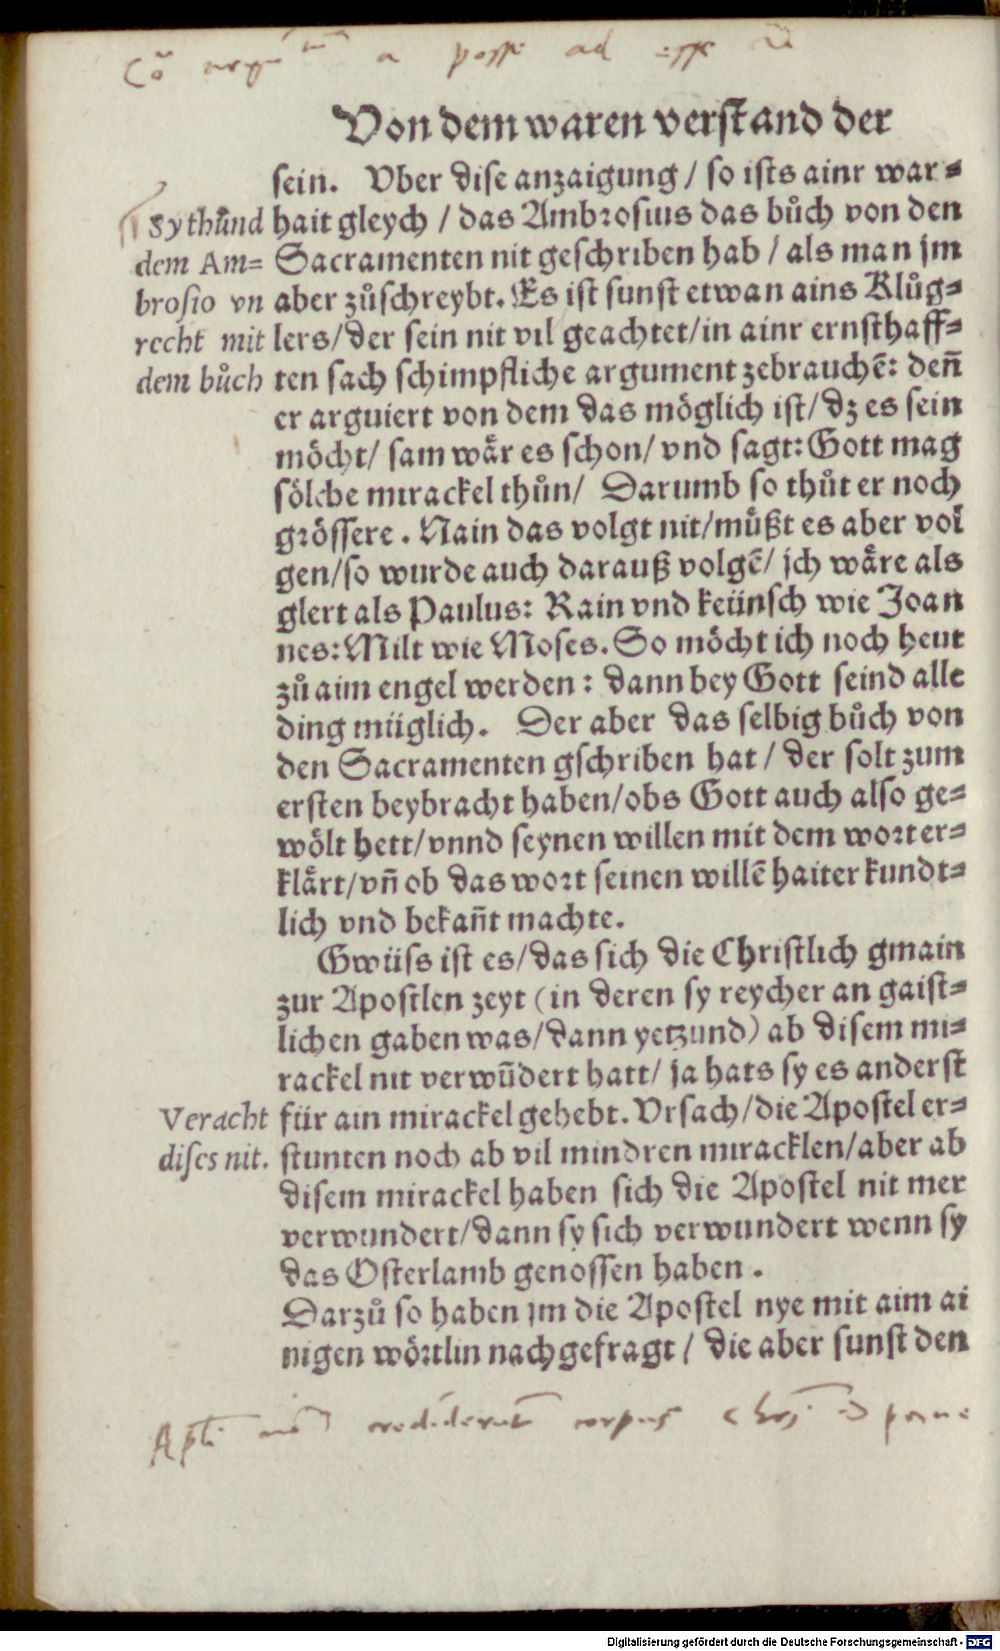 a posse ad esse
Von dem waren verstand der
sein. Vber dise anzaigung / so ists ainr war=
hait gleych / das Ambrosius das bůch von den
Sacramenten nit geschriben hab / als man jm
aber zůschreybt. Es ist sunst etwan ains Klůg=
lers/der sein nit vil geachtet/in ainr ernsthaff=
ten sach schimpfliche argument zebrauchē: deñ
er arguiert von dem das möglich ist/dz es sein
möcht/ sam wår es schon/ vnd sagt: Gott mag
sölche mirackel thůn/ Darumb so thůt er noch
grössere. Nain das volgt nit/müßt es aber vol
gen/so wurde auch darauß volgē/ jch wåre als
glert als Paulus: Rain vnd keünsch wie Joan
nes: Milt wie Moses. So möcht ich noch heut
zů aim engel werden: dann bey Gott seind alle
ding müglich. Der aber das selbig bůch von
den Sacramenten gschriben hat / der solt zum
ersten beybracht haben/obs Gott auch also ge=
wölt hett/vnnd seynen willen mit dem wort er=
klårt/vñ ob das wort seinen willē haiter kundt=
lich vnd bekañt machte.
Gwüss ist es/das sich die Christlich gmain
zur Apostlen zeyt (in deren sy reycher an gaist=
lichen gaben was/dann yetzund) ab disem mi=
rackel nit verwūdert hatt/ ja hats sy es anderst
für ain mirackel gehebt. Vrsach/die Apostel er=
stunten noch ab vil mindren miracklen/aber ab
disem mirackel haben sich die Apostel nit mer
verwundert/dann sy sich verwundert wenn sy
das Osterlamb genossen haben.
Darzů so haben jm die Apostel nye mit aim ai
nigen wörtlin nachgefragt / die aber sunst den
Sy thůnd
dem Am=
brosio vn
recht mit
dem bůch
Veracht
dises nit.
crediderunt corpus
Digitalisierung gefördert durch die Deutsche Forschungsgemeinschaft - DFG